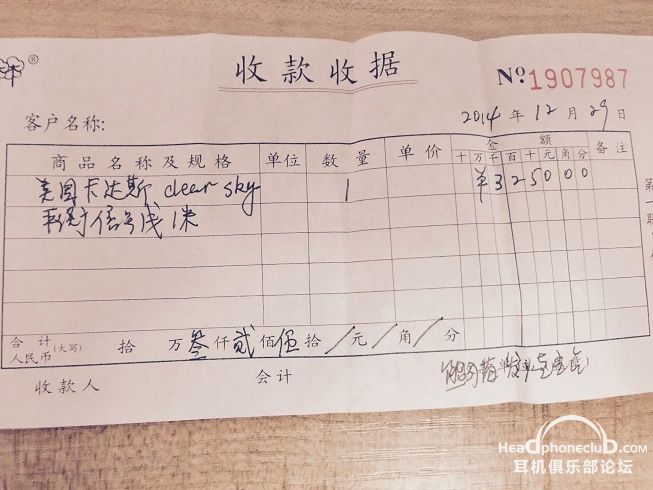 ®
收款收据
№ 1907987
客户名称:
2014 年 12 月 29 日
商品名称及规格 单位 数量 单价 金额 备注
十 万 千 百 十 元 角 分
美国卡达斯 clear sky 1 ¥325000
平衡信号线 1米
合计 人民币 (大写) 拾 万 叁 仟 贰 佰 伍 拾 / 元 / 角 / 分
收款人 会计
Headphoneclub.com
耳机俱乐部论坛